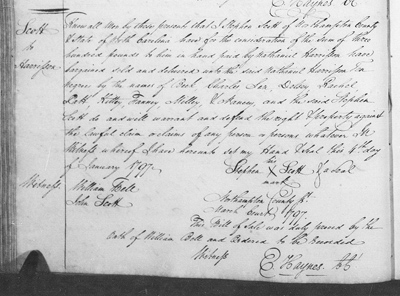 E Haynes Ck
Scott
to
Harrison
Know all Men by these presents that I Stephen Scott of Northampton County
& State of North Carolina have for the consideration of the Sum of three
hundred pounds to him in hand paid by Nathaniel Harrison have
bargained sold and delivered unto the said Nathaniel Harrison Ten
negroes by the names of Charles Dilsey Rachel
Kitty Fanny Milley & Nancy and the said Stephen
Scott do and will warrant and defend the right & property against
the lawful claim or claims of any person or persons whatever In
Witness whereof I have hereunto set my Hand & Seal this day
of January 1797.
his
Stephen X Scott Seal
mark
Witness
William Bolt
John Scott
Northampton County
March Court 1797
This Bill of Sale was duly proved by the
Oath of William Bolt and Ordered to be Recorded
Witness
E Haynes Ck